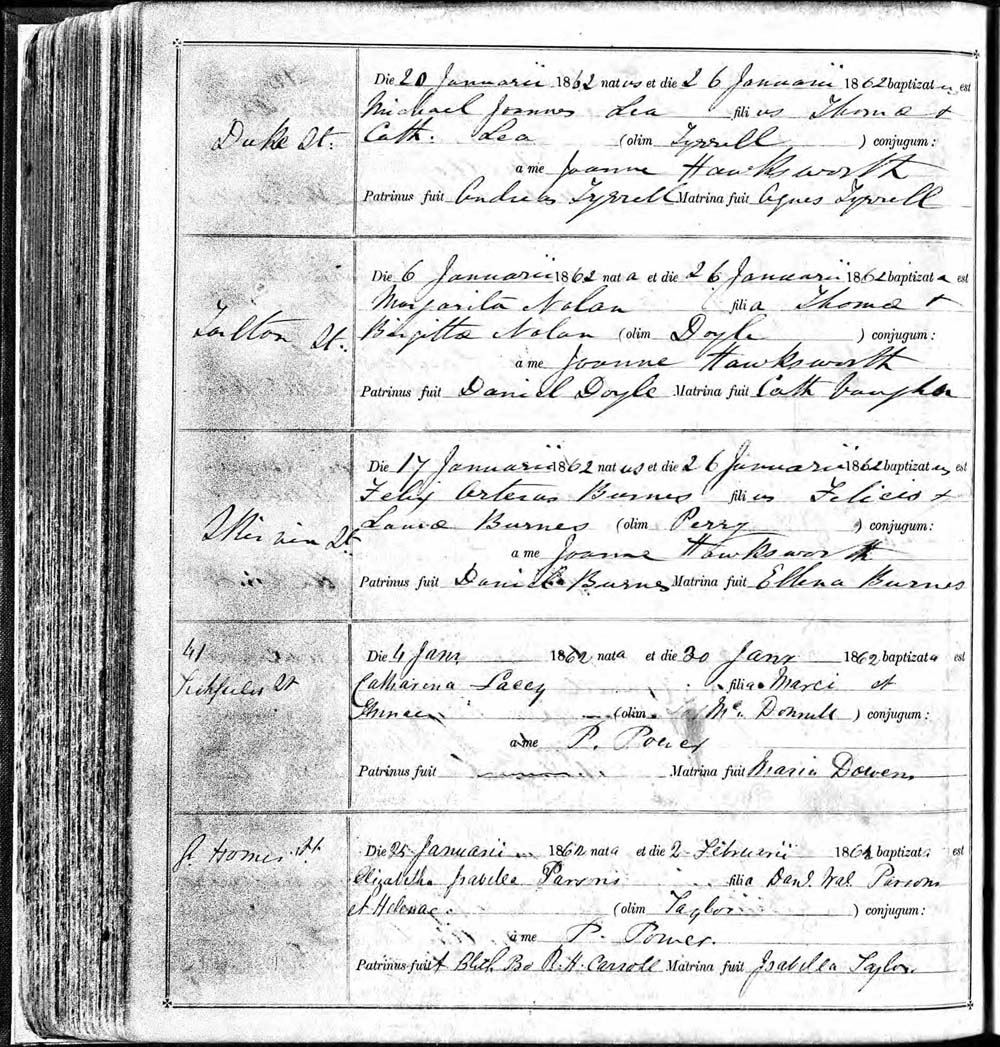 Duke St.
Die 20 Januarii 1862 natus et die 26 Januarii 1862 baptizatus est
Michael Joannes Lea filius Thomæ +
Cath. Lea (olim Tyrrell ) conjugum:
a me Joanne Hawksworth
Patrinus fuit Andreas Tyrrell Matrina fuit Agnes Tyrrell
St.
Die 6 Januarii 1862 nata et die 26 Januarii 1862 baptizata est
Margarita Nolan filia Thomæ +
Birgittæ Nolan (olim Doyle ) conjugum:
a me Joanne Hawksworth
Patrinus fuit Daniel Doyle Matrina fuit Cath Vaughan
St
Die 17 Januarii 1862 natus et die 26 Januarii 1862 baptizatus est
Felix Burnes filius Felicis +
Burnes (olim Perry ) conjugum:
a me Joanne Hawksworth
Patrinus fuit Daniel Burnes Matrina fuit Ellena Burnes
41
St
Die 4 Janr 1862 nata et die 30 Janr 1862 baptizata est
Catharina Lacey filia Marci et
Annae (olim Mc. Donnell ) conjugum:
a me P. Power
Patrinus fuit Matrina fuit Maria Dowens
St
Die 25 Januarii 1862 nata et die 2 Februarii 1862 baptizata est
Elizabetha Isabella Parsons filia Danl. Wal. Parsons
et Helenae (olim Taylor ) conjugum:
a me P. Power.
Patrinus fuit R. H. Carroll Matrina fuit Isabella Taylor